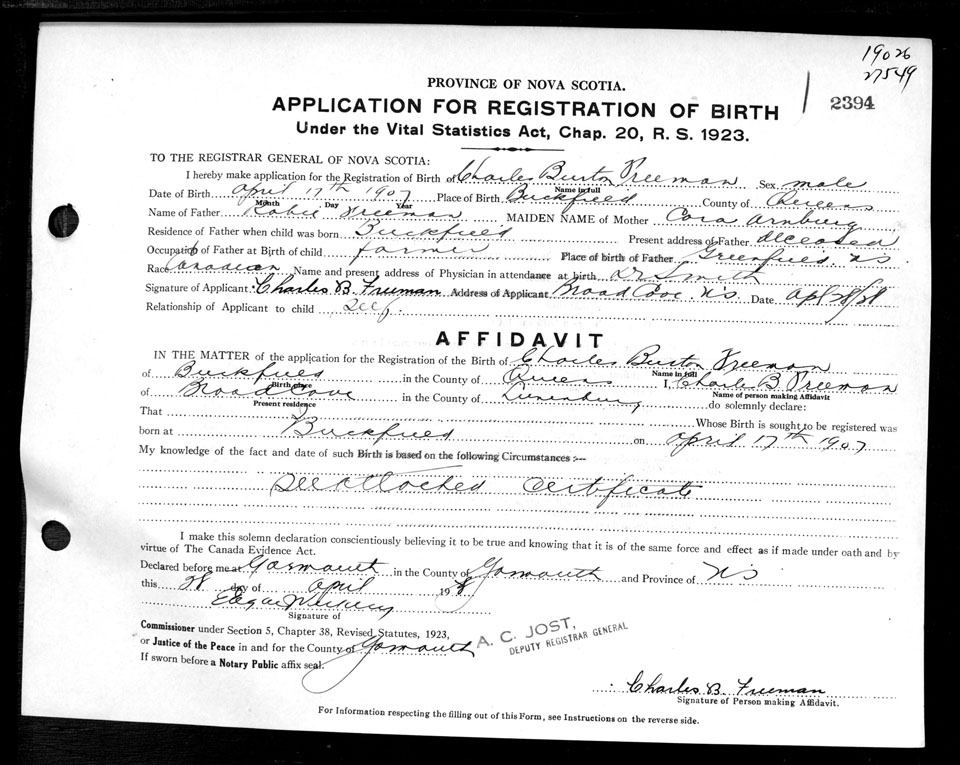 19026
27549
PROVINCE OF NOVA SCOTIA.
2394
APPLICATION FOR REGISTRATION OF BIRTH
Under the Vital Statistics Act, Chap. 20, R. S. 1923.
TO THE REGISTRAR GENERAL OF NOVA SCOTIA:
I hereby make application for the Registration of Birth of Charles Burton Freeman Sex male
Name in full
Date of Birth April 17th 1907 Place of Birth Buckfield County of Queens
Month Day Year
Name of Father Freeman MAIDEN NAME of Mother Cora
Residence of Father when child was born Buckfield Present address of Father deceased
Occupation of Father at Birth of child farmer Place of birth of Father Greenfield. NS.
Race Canadian Name and present address of Physician in attendance at birth. Dr Smith
Signature of Applicant Charles B. Freeman Address of Applicant Cove. NS. Date Apl 28/28
Relationship of Applicant to child Self.
AFFIDAVIT
IN THE MATTER of the application for the Registration of the Birth of Charles Burton Freeman
Name in full
of Buckfield in the County of Queens I, Charles B Freeman
Birth place Name of person making Affidavit
of Cove in the County of Lunenburg do solemnly declare:
Present residence
That I Whose Birth is sought to be registered was
born at Buckfield on April 17th 1907
My knowledge of the fact and date of such Birth is based on the following Circumstances :—
See attached Certificate
I make this solemn declaration conscientiously believing it to be true and knowing that it is of the same force and effect as if made under oath and by
virtue of The Canada Evidence Act.
Declared before me at Yarmouth in the County of Yarmouth and Province of NS
this 28 day of April 1928
Signature of
Commissioner under Section 5, Chapter 38, Revised Statutes, 1923,
or Justice of the Peace in and for the County of Yarmouth
A. C. JOST,
DEPUTY REGISTRAR GENERAL
If sworn before a Notary Public affix seal.
Charles B. Freeman
Signature of Person making Affidavit.
For Information respecting the filling out of this Form, see Instructions on the reverse side.